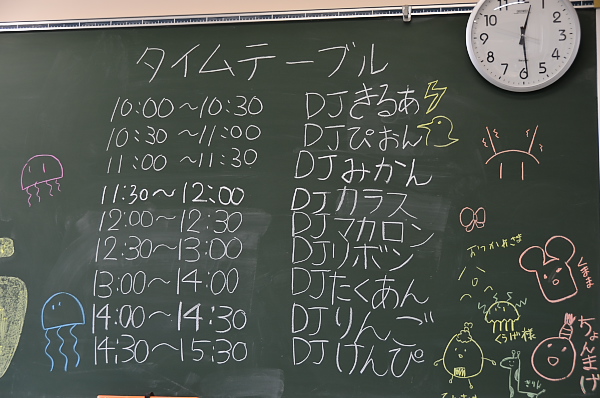 タイムテーブル
10:00～10:30 DJきるあ
10:30～11:00 DJぴおん
11:00～11:30 DJみかん
11:30～12:00 DJカラス
12:00～12:30 DJマカロン
12:30～13:00 DJリボン
13:00～14:00 DJたくあん
14:00～14:30 DJりんご
14:30～15:30 DJけんぴ
おつかれさま
くまま
くらげ様
ちょんまげ
きりん